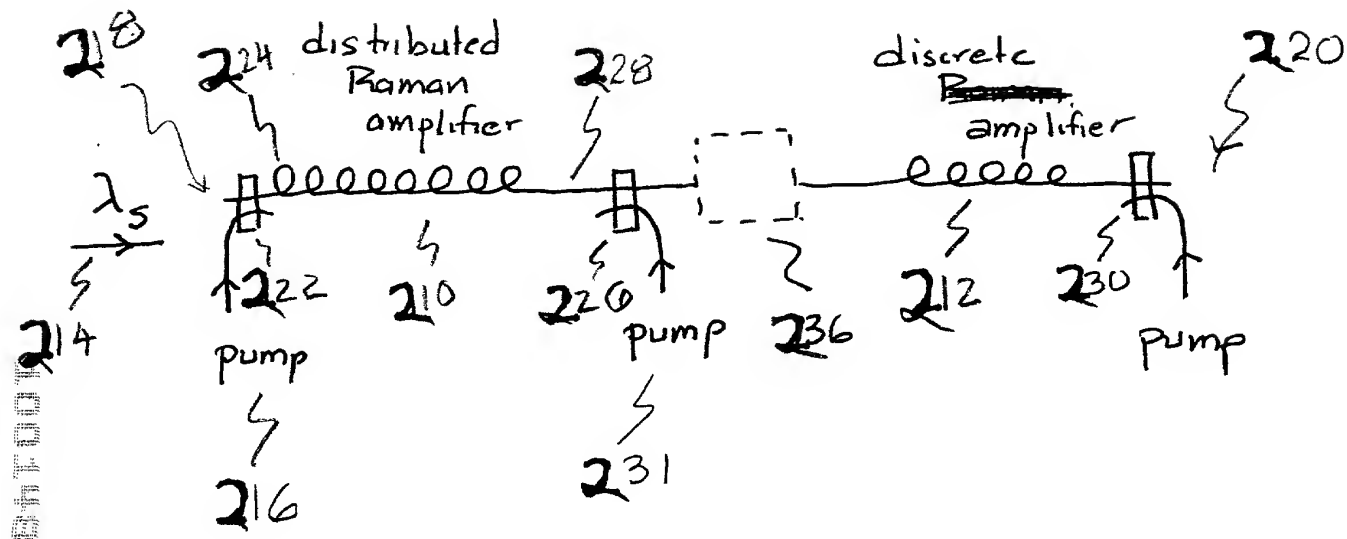 218
224
distributed
Raman
amplifier
228
discrete
amplifier
220
λs
214
222
210
226
236
212
230
pump
216
pump
231
pump